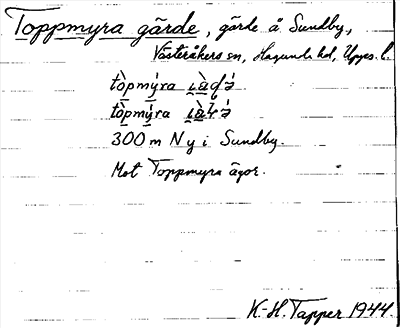 Toppmyra gärde, gärde å Sundby,
Västeråkers sn, Hagunda hd, Upps. l.
tòpmýra
tòpmýra
300 m N y i Sundby.
Mot Toppmyra ägor.
K.-H. Tapper 1944.